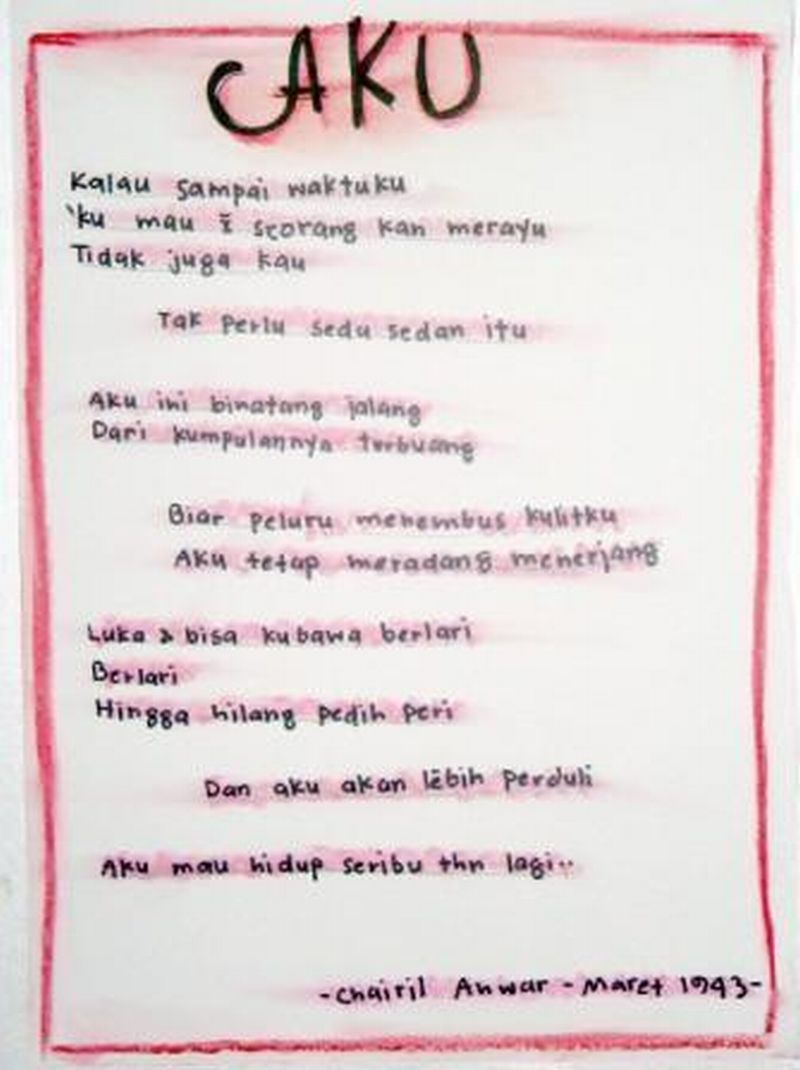 AKU
Kalau sampai waktuku
'ku mau seorang kan merayu
Tidak juga kau
Tak perlu sedu sedan itu
Aku ini binatang jalang
Dari kumpulannya terbuang
Biar peluru menembus kulitku
Aku tetap meradang menerjang
Luka & bisa kubawa berlari
Berlari
Hingga hilang pedih peri
Dan aku akan lebih perduli
Aku mau hidup seribu thn lagi..
-Chairil Anwar - Maret 1943-